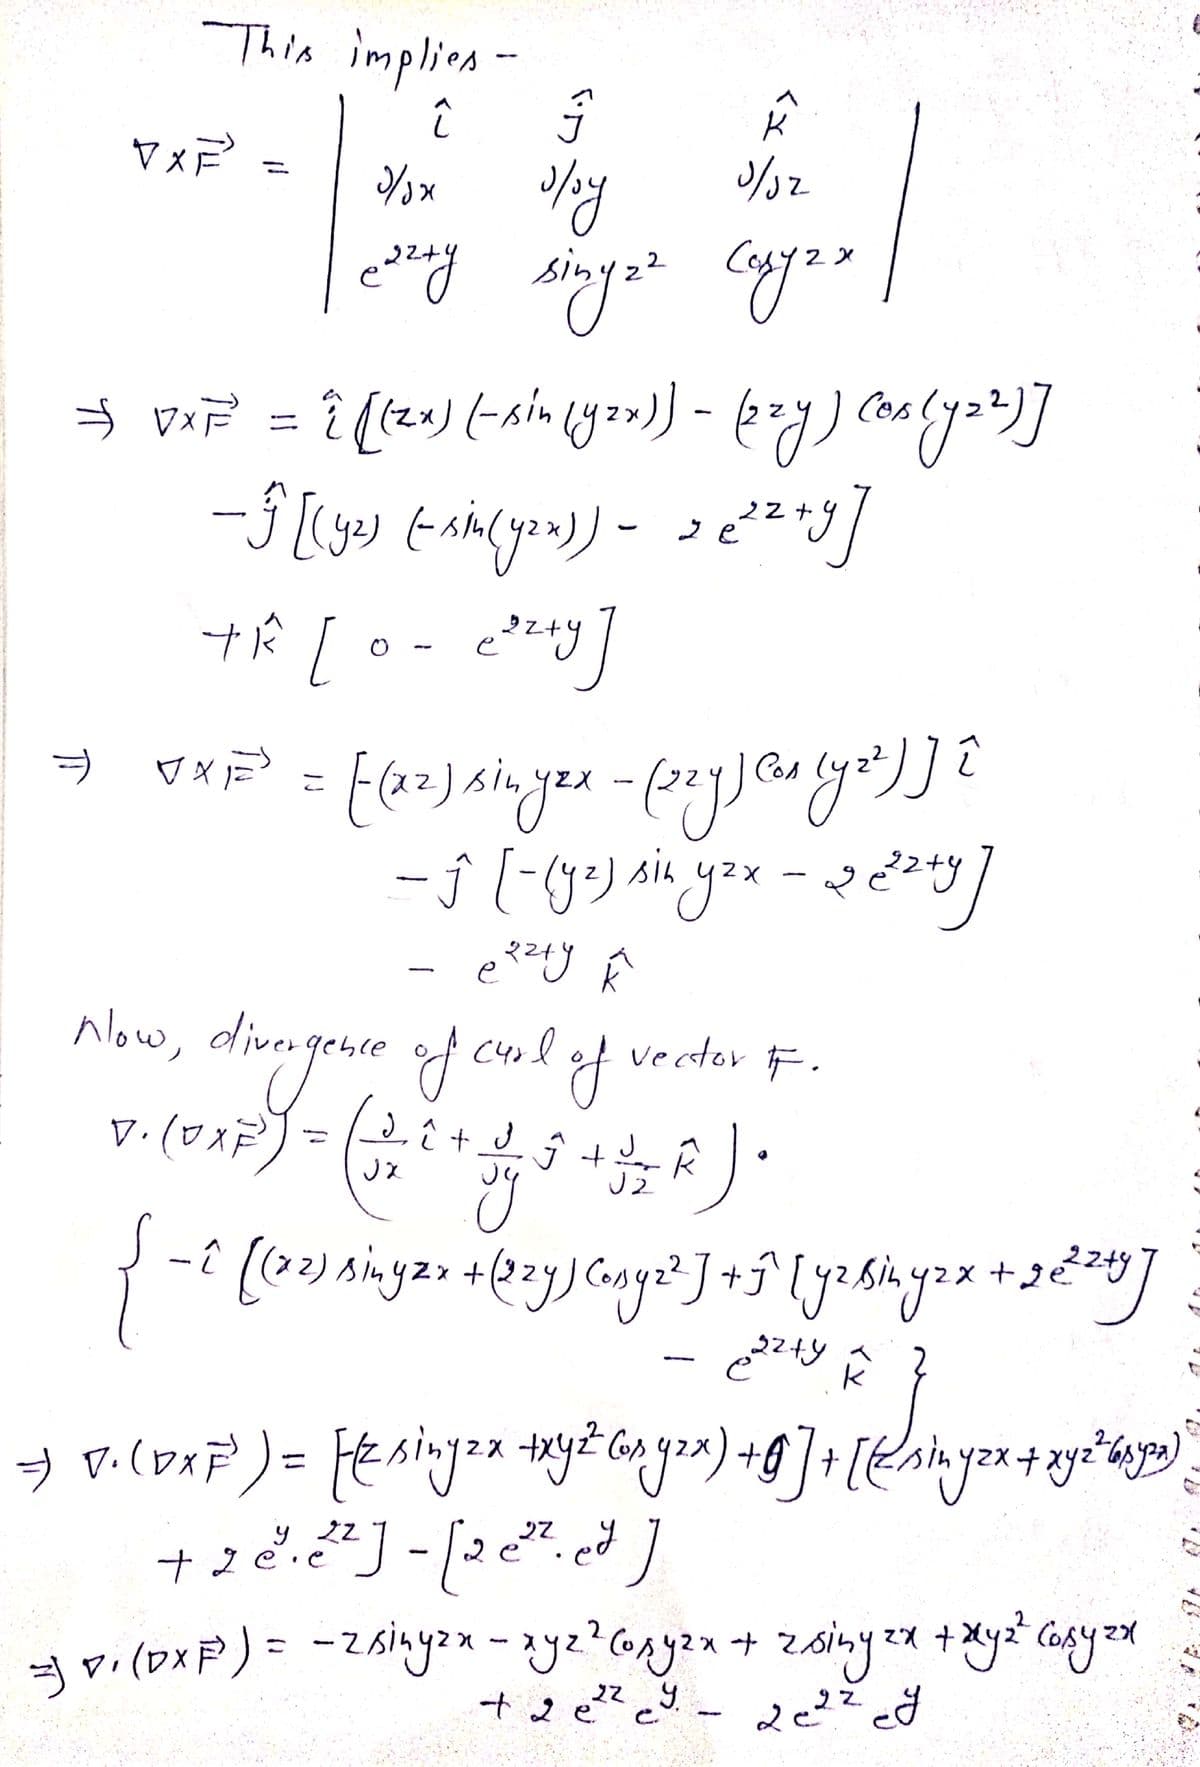 This implies -
∇×F⃗ = | î ĵ k̂ |
∂/∂x ∂/∂y ∂/∂z
e^{2z+y} sinyz² Cosyzx
⇒ ∇×F⃗ = î [(zx) (-sin(yzx)) - (2zy) Cos(yz²)]
-ĵ [(yz) (-sin(yzx)) - 2e^{2z+y}]
+k̂ [0 - e^{2z+y}]
⇒ ∇×F⃗ = [-(xz) sinyzx - (2zy) Cos(yz²)] î
-ĵ [-(yz) sin yzx - 2e^{2z+y}]
- e^{2z+y} k̂
Now, divergence of curl of vector F.
∇·(∇×F⃗) = (∂/∂x î + ∂/∂y ĵ + ∂/∂z k̂) ·
{ -î [(xz) sinyzx + (2zy) Cosyz²] + ĵ [yz sinyzx + 2e^{2z+y}]
- e^{2z+y} k̂ }
⇒ ∇·(∇×F⃗) = [-(z sinyzx + xyz² Cosyzx) + 0] + [(z sinyzx + xyz² Cosyzx)
+ 2e^y·e^{2z}] - [2e^{2z}·e^y]
⇒ ∇·(∇×F⃗) = -z sinyzx - xyz² Cosyzx + z sinyzx + xyz² Cosyzx
+ 2e^{2z} e^y - 2e^{2z} e^y